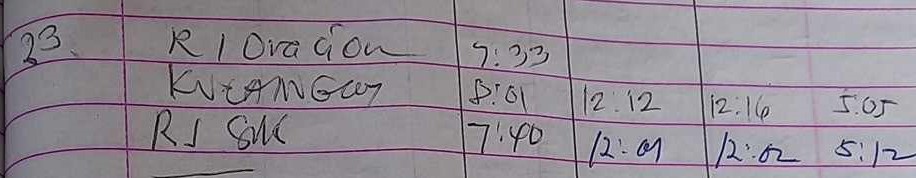 23. RJ Oracion 7:33
8:01 12:12 12:16 5:05
RJ 7:40 12:01 12:02 5:12